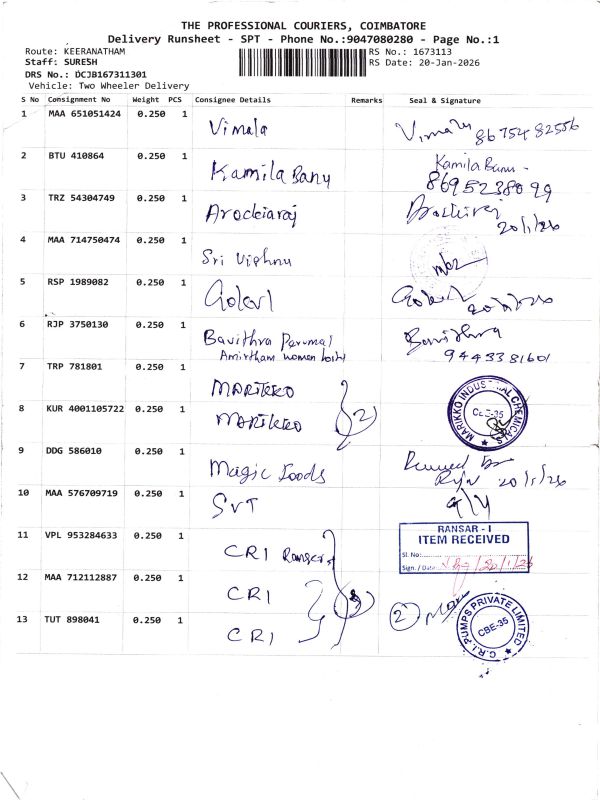 THE PROFESSIONAL COURIERS, COIMBATORE
Delivery Runsheet - SPT - Phone No.:9047080280 - Page No.:1
Route: KEERANATHAM
RS No.: 1673113
Staff: SURESH
RS Date: 20-Jan-2026
DRS No.: DCJB167311301
Vehicle: Two Wheeler Delivery
S No Consignment No Weight PCS Consignee Details Remarks Seal & Signature
1 MAA 651051424 0.250 1 Vimala Vimala 8675482556
2 BTU 410864 0.250 1 Kamila Banu Kamila Banu
8695238099
3 TRZ 54304749 0.250 1 Arockiaraj 20/1/26
4 MAA 714750474 0.250 1 Sri Vishnu
5 RSP 1989082 0.250 1
6 RJP 3750130 0.250 1 Bavithra Perumal Bavithra
Amirtham women 9443381601
7 TRP 781801 0.250 1 MARIKKO
MARIKKO INDUSTRIAL CHEMICALS
CBE-35
8 KUR 4001105722 0.250 1 MARIKKO 2
9 DDG 586010 0.250 1 Magic Foods
20/1/26
10 MAA 576709719 0.250 1 SVT
RANSAR - I
ITEM RECEIVED
Sl. No:
Sign. / Date: 20/1/26
11 VPL 953284633 0.250 1 CRI
12 MAA 712112887 0.250 1 CRI
2
C.R.I. PUMPS PRIVATE LIMITED
CBE-35
13 TUT 898041 0.250 1 CRI